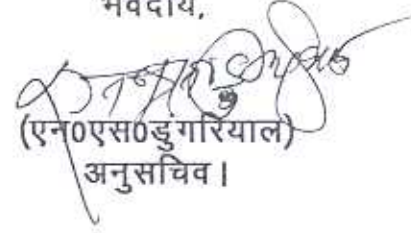 भवदीय,
(एन0एस0डुंगरियाल)
अनुसचिव।